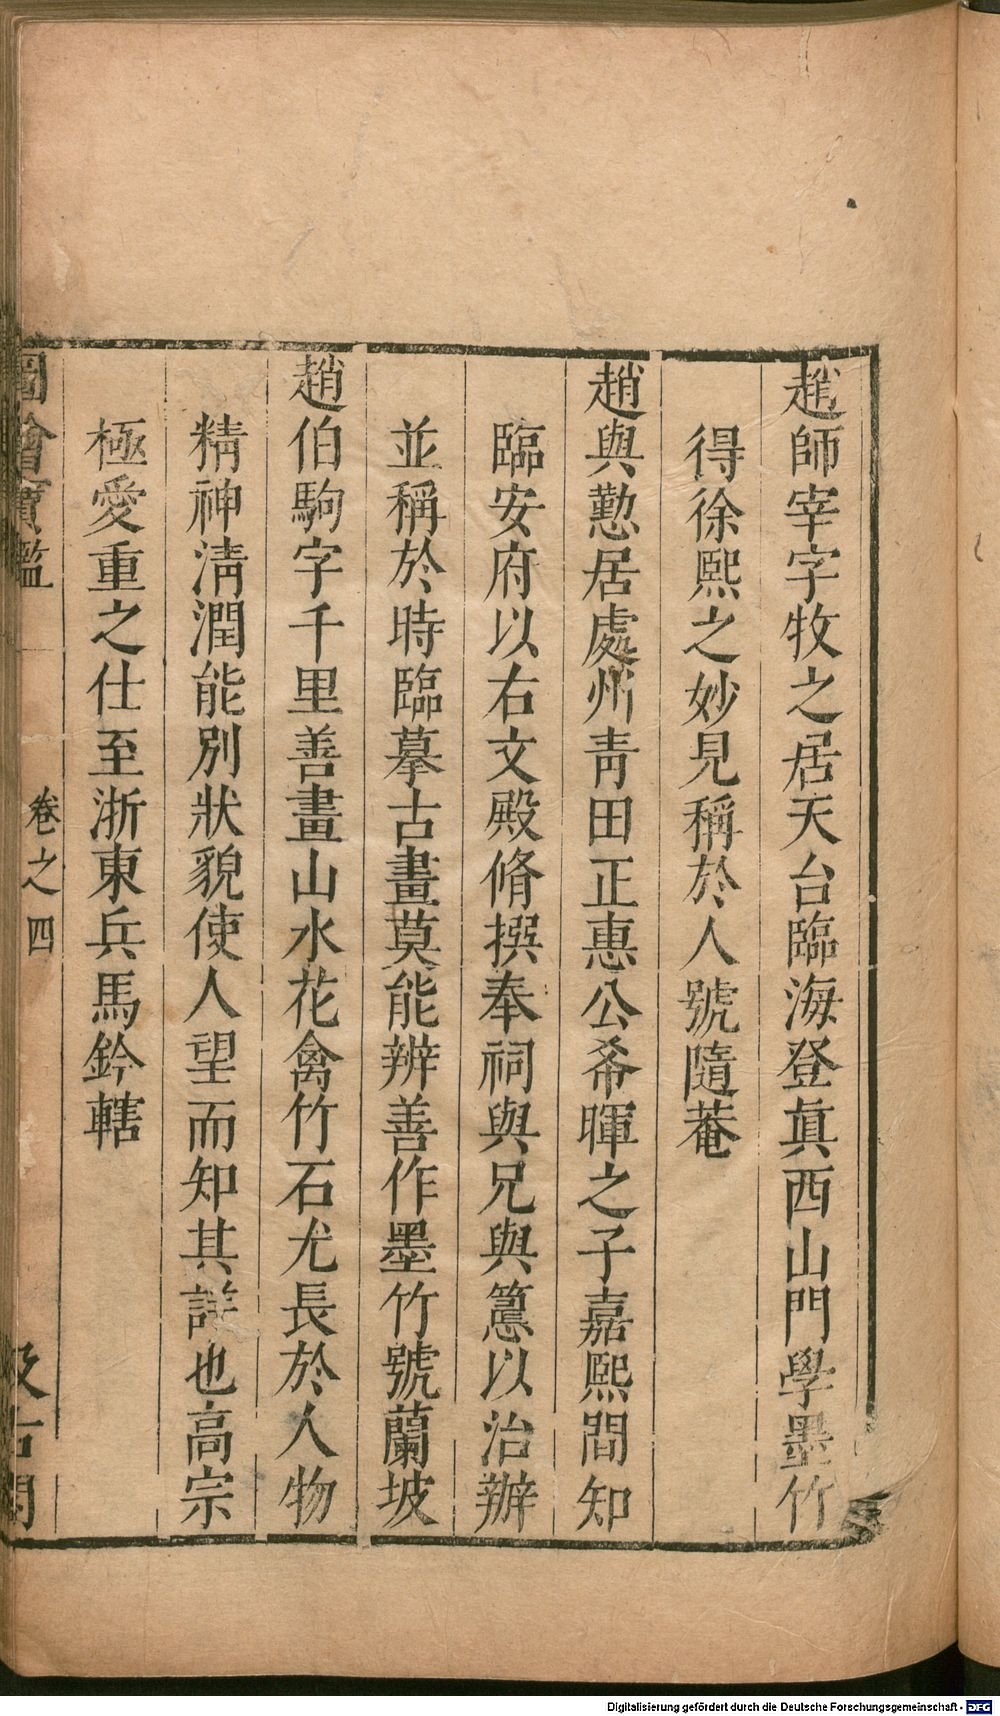 趙師宰字牧之居天台臨海登眞西山門學墨竹
得徐熙之妙見稱於人號隨菴
趙與懃居處州青田正惠公希暉之子嘉熙間知
臨安府以右文殿脩撰奉祠與兄與𥲅以治辦
並稱於時臨摹古畫莫能辨善作墨竹號蘭坡
趙伯駒字千里善畫山水花禽竹石尤長於人物
精神清潤能別狀貌使人望而知其詳也高宗
極愛重之仕至浙東兵馬鈐轄
圖繪寶鑑
卷之四
汲古閣
Digitalisierung gefördert durch die Deutsche Forschungsgemeinschaft - DFG